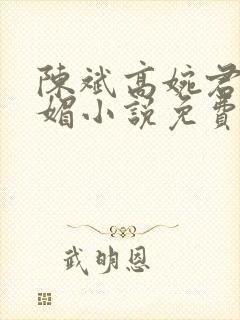 陳斌高婉君
媚小說免費
武明恩